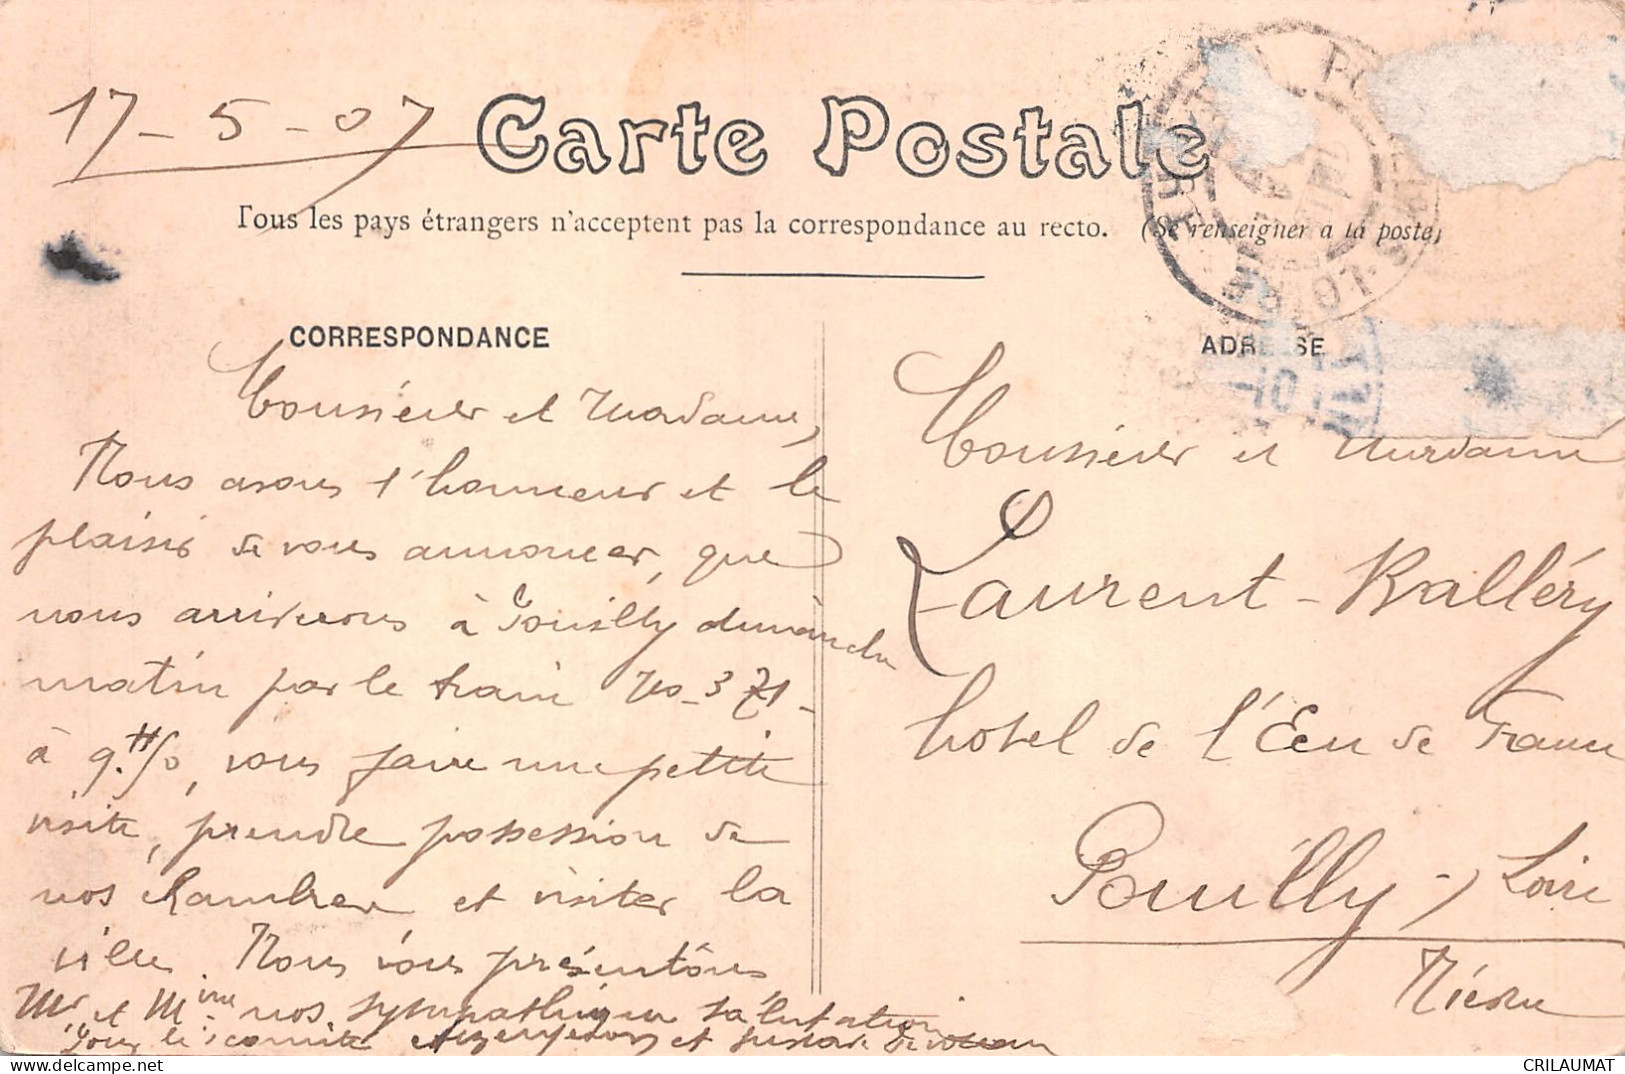 17-5-07
Carte Postale
Tous les pays étrangers n'acceptent pas la correspondance au recto. (Se renseigner à la poste)
CORRESPONDANCE
Monsieur et Madame,
Nous avons l'honneur et le
plaisir de vous annoncer, que
nous arriverons à Pouilly dimanche
matin par le train No-371-
à 9.H50, vous faire une petite
visite, prendre possession de
nos chambres et visiter la
ville. Nous vous présentons
Mr et Mme nos sympathiques salutations
Pour le comité
ADRESSE
Monsieur et Madame
Laurent-Ralléry
hotel de l'Ecu de France
Pouilly-s/Loire
Nièvre
LOIRE
CRILAUMAT